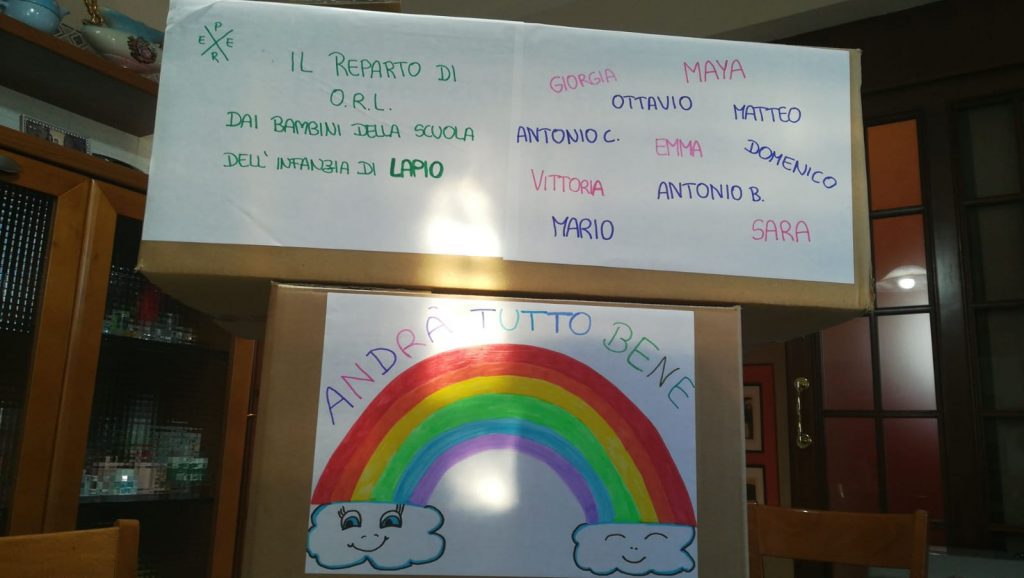 PER
E E
IL REPARTO DI
O.R.L.
DAI BAMBINI DELLA SCUOLA
DELL'INFANZIA DI LAPIO
GIORGIA MAYA
OTTAVIO MATTEO
ANTONIO C. EMMA DOMENICO
VITTORIA ANTONIO B.
MARIO SARA
ANDRÀ TUTTO BENE